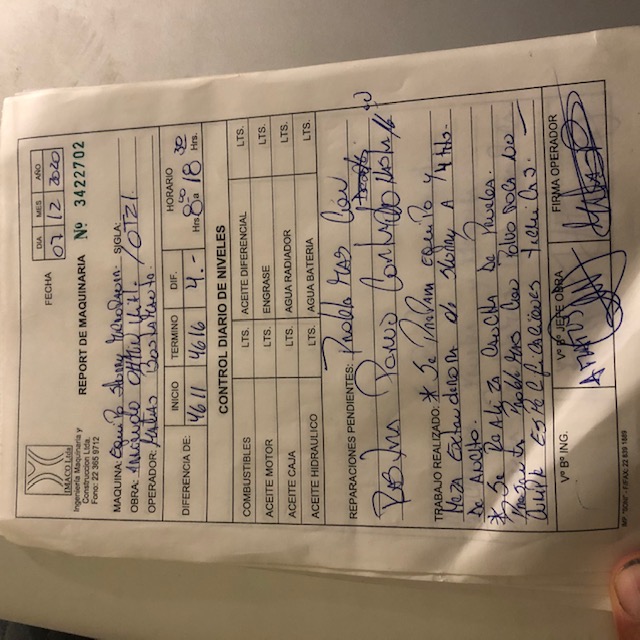 IMACO Ltda
Ingeniería Maquinaria y
Construccion Ltda.
Fono: 22 365 9712
FECHA
DIA MES AÑO
07 12 2020
REPORT DE MAQUINARIA Nº 3422702
MAQUINA: Equipo Slurry SIGLA:
OBRA: /OTZI.
OPERADOR: Matias Bustamante.
DIFERENCIA DE:
INICIO TERMINO DIF. HORARIO
4611 4616 4.- Hrs. 8:00 a 18 30 Hrs.
CONTROL DIARIO DE NIVELES
COMBUSTIBLES LTS. ACEITE DIFERENCIAL LTS.
ACEITE MOTOR LTS. ENGRASE LTS.
ACEITE CAJA LTS. AGUA RADIADOR LTS.
ACEITE HIDRAULICO LTS. AGUA BATERIA LTS.
REPARACIONES PENDIENTES: Problemas Con
TRABAJO REALIZADO: * Se Prepara equipo y
Meza Extendedora de Slurry A 4 mts.
De Ancho.
* Se Realiza Cancha De Prueba.
Presenta Problemas Con Polvo Roca No
Cumple Especificaciones Tecnicas.
Vº Bº ING. Vº Bº JEFE OBRA FIRMA OPERADOR
IMP. "SONI" - F/FAX: 22 839 1889